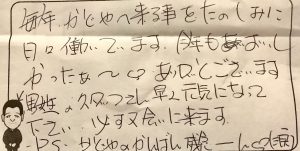 毎年、かじやへ来る事をたのしみに
日々働いてます。今年もおいし
かったぁ〜♡ ありがとございます
男性のスタッフさん早く元気になって
下さい 必ず又会いに来ます
P.S. かじやのかんばん